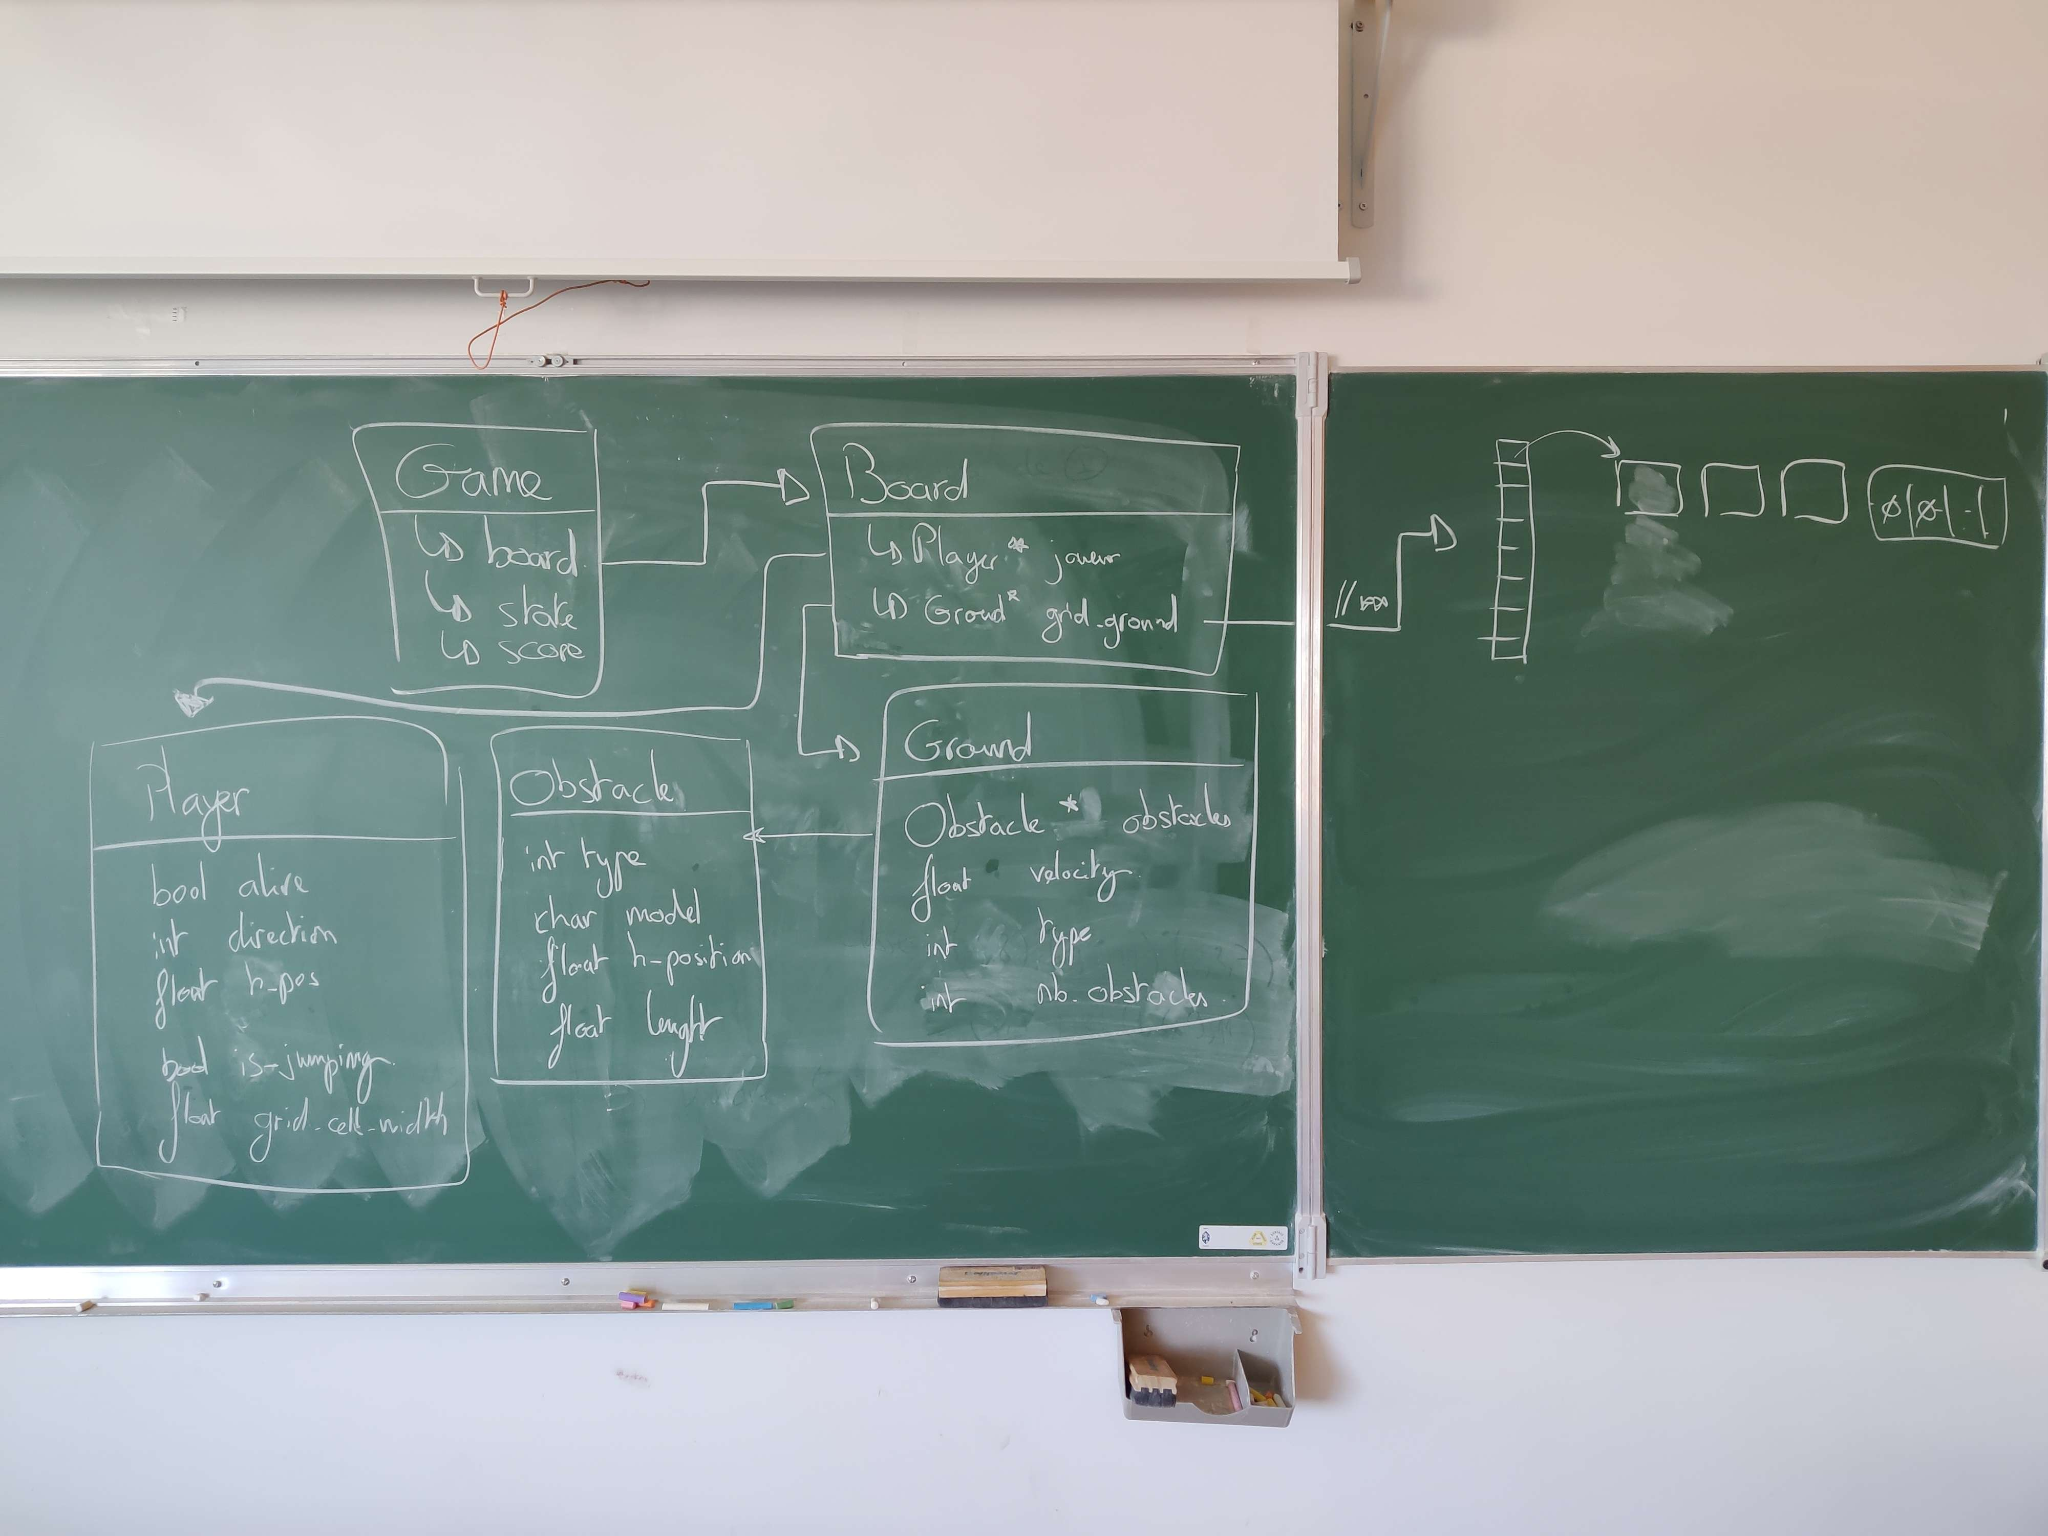 Game
↳ board
↳ state
↳ score
Board
↳ Player * joueur
↳ Ground * grid_ground
//
Player
bool alive
int direction
float h_pos
bool is_jumping
float grid_cell_width
Obstacle
int type
char model
float h_position
float lenght
Ground
Obstacle * obstacles
float velocity
int type
int nb_obstacles
∅|∅|..|